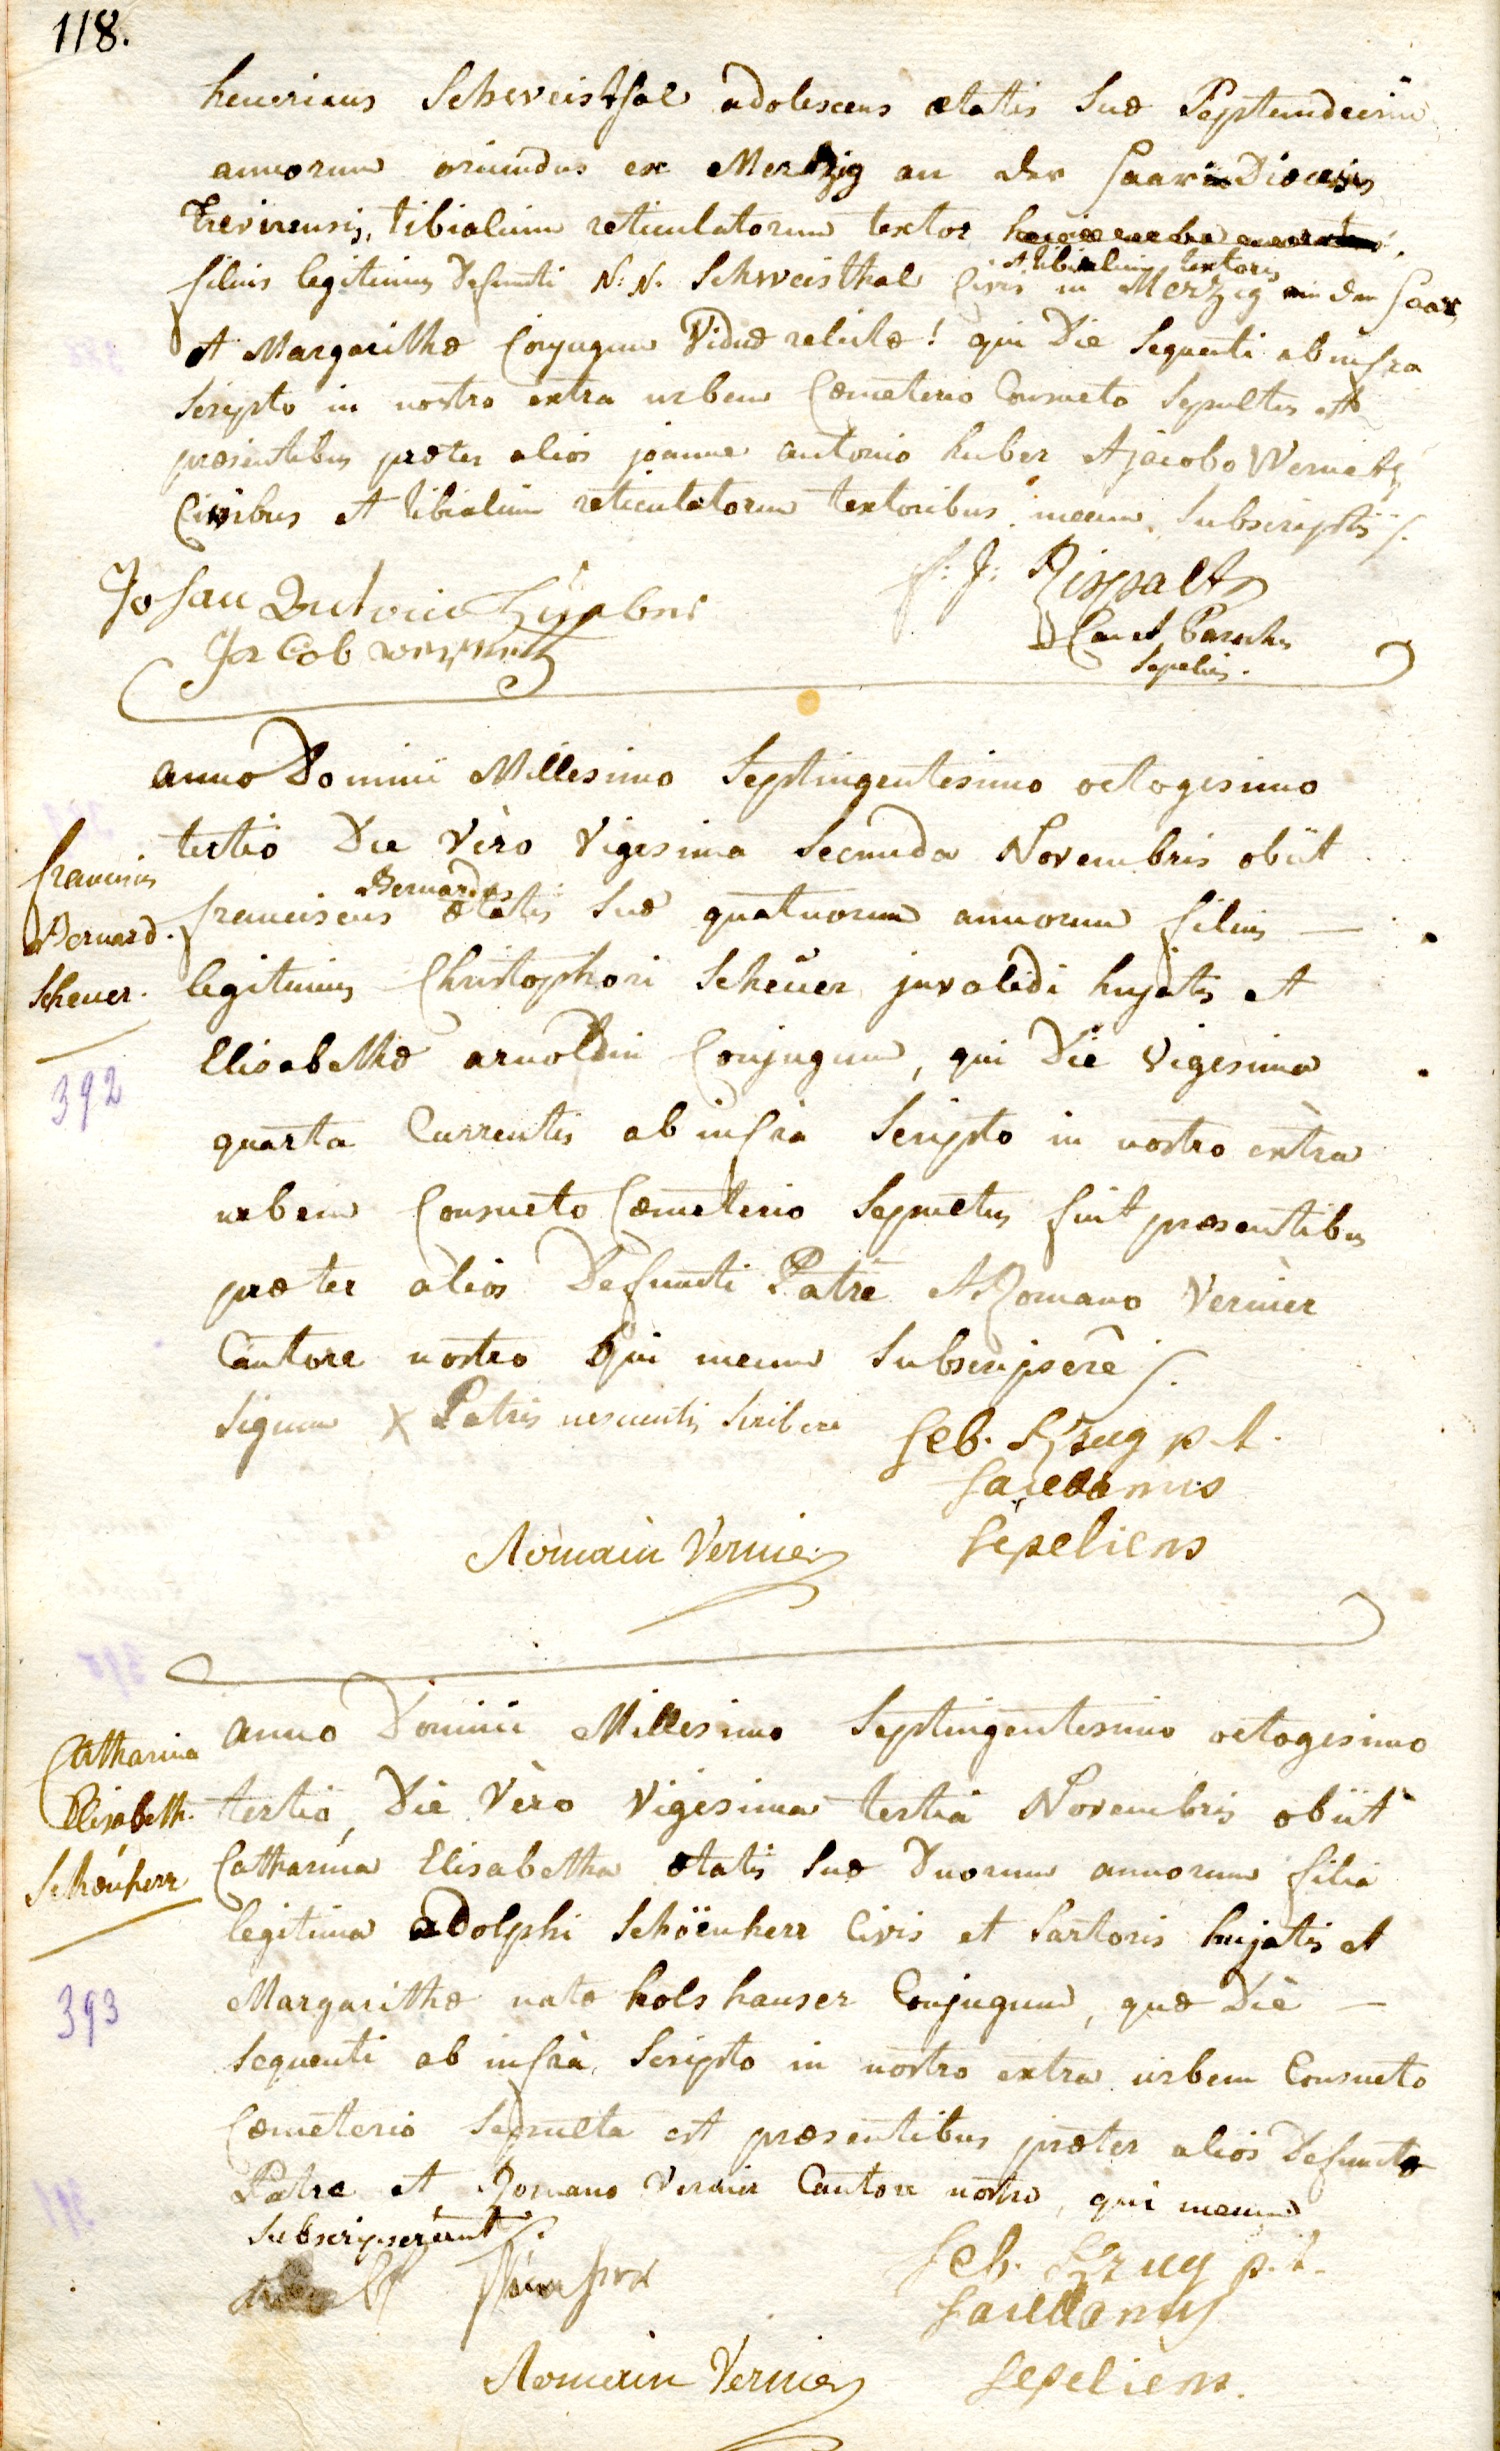 118.
Schweisthal adolescens ætatis suæ Septemdecim
annorum oriundus ex Merzig an der Saar Diœcesis
Trevirensis, tibialium reticulatorum textor
et tibialium textoris
filius legitimus defuncti N: N. Schweisthal Civis in Merzig an der Saar
et Margarithæ Conjugum Viduæ relictæ! qui Die Sequenti ab infra
scripto in nostro extra urbem Cœmeterio Consueto Sepultus est
præsentibus præter alios joanne antonio huber et jacobo Wernetz
Civibus et tibialium reticulatorum textoribus mecum Subscriptis
Johan Antoni
Jacob
Can et Parochus
Sepeliens.
anno Domini Millesimo Septingentesimo octogesimo
tertio Die Vèro Vigesima Secunda Novembris obiit
Bernardus
franciscus ætatis Suæ quatuorum annorum filius —
legitimus Christophori Scheüer invalidi hujatis et
Elisabethæ arnoldin Conjugum, qui Die Vigesima
quarta Currentis ab infra Scripto in nostro extra
urbem Consueto Cœmeterio Sepultus fuit præsentibus
præter alios Defuncti Patre et Romano Vernier
Cantore nostro Qui mecum Subscripsere
Signum X Patris nescientis Scribere
Seb. Krug p. t.
Sacellanus
Romain Vernier
sepeliens
franciscus
Bernard.
Scheuer.
392
anno Domini Millesimo Septingentesimo octogesimo
tertio, Die Vèro Vigesima tertia Novembris obiit
Catharina Elisabetha ætatis Suæ Duorum annorum filia
legitima adolphi Schöenherr Civis et Sartoris hujatis et
Margarithæ natæ holshauser Conjugum, quæ Die —
Sequenti ab infrà Scripto in nostro extra urbem Consueto
Cœmeterio Sepulta est præsentibus præter alios Defunctæ
Patre et Romano Vernier Cantore nostro, qui mecum
Subscripserunt
Seb. Krug p. t.
Sacellanus
Romain Vernier
sepeliens.
Catharina
Elisabeth.
Schönherr
393